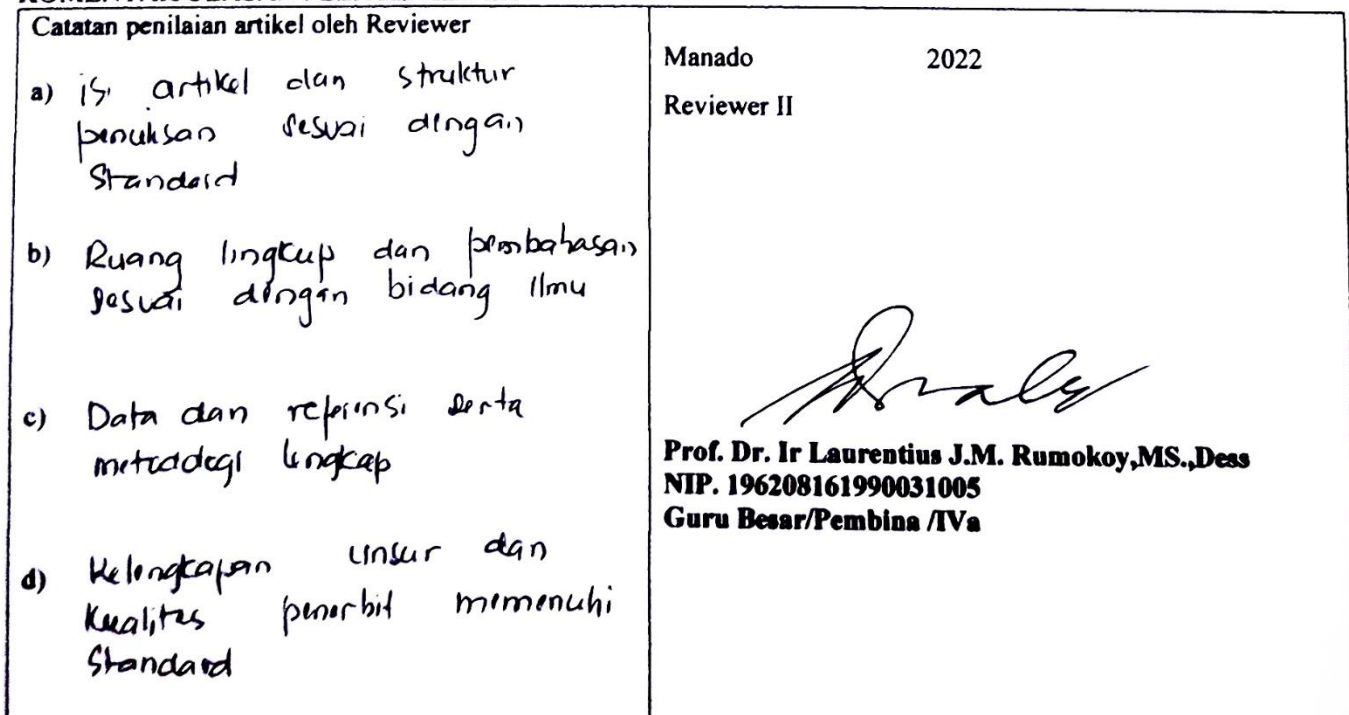 Catatan penilaian artikel oleh Reviewer
a) isi artikel dan struktur
penulisan sesuai dengan
Standard
b) Ruang lingkup dan pembahasan
sesuai dengan bidang Ilmu
c) Data dan referensi serta
metodologi lengkap
d) Kelengkapan unsur dan
Kualitas penerbit memenuhi
Standard
Manado 2022
Reviewer II
Prof. Dr. Ir Laurentius J.M. Rumokoy,MS.,Dess
NIP. 196208161990031005
Guru Besar/Pembina /IVa